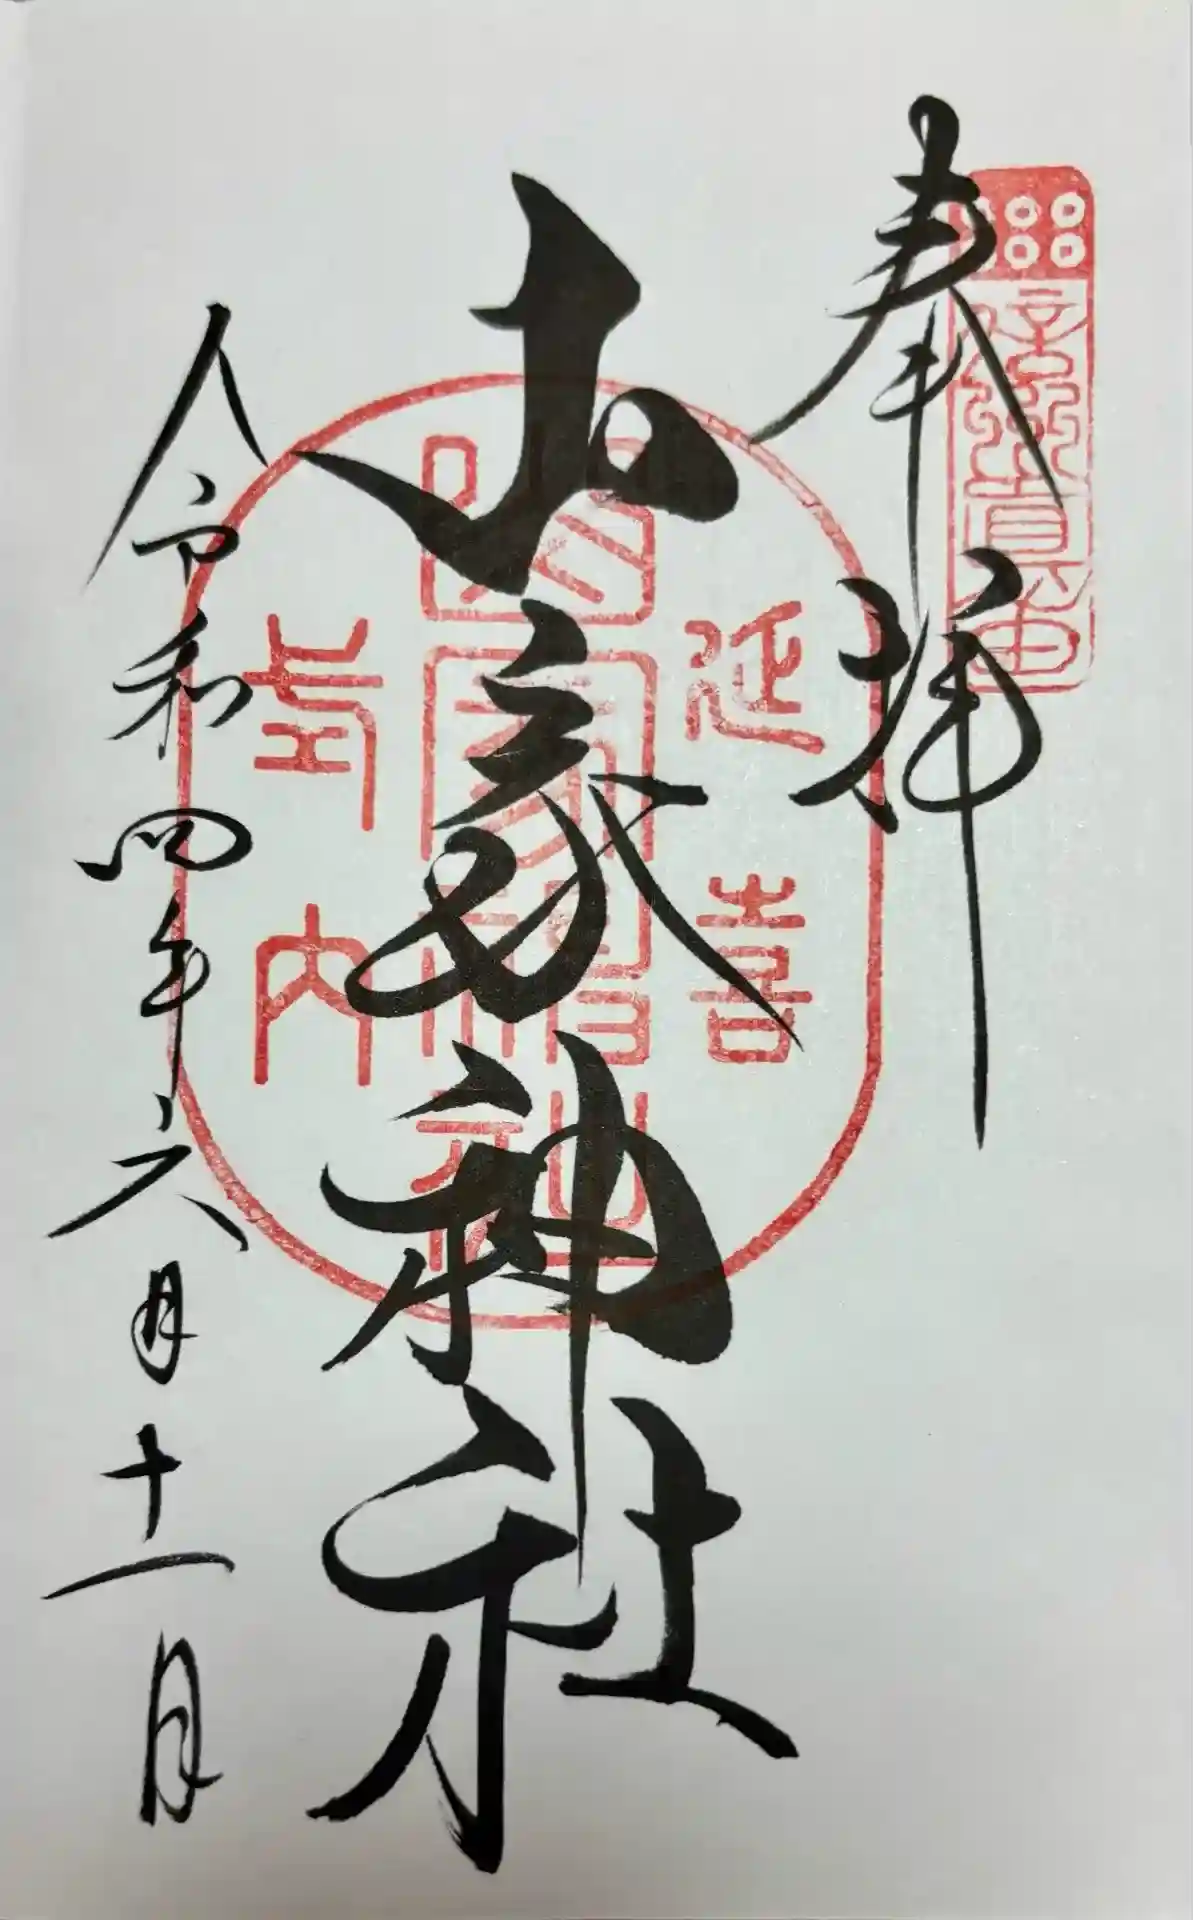 奉拝
信州真田
山家神社
延喜
式内
山家神社
令和四年六月十一日